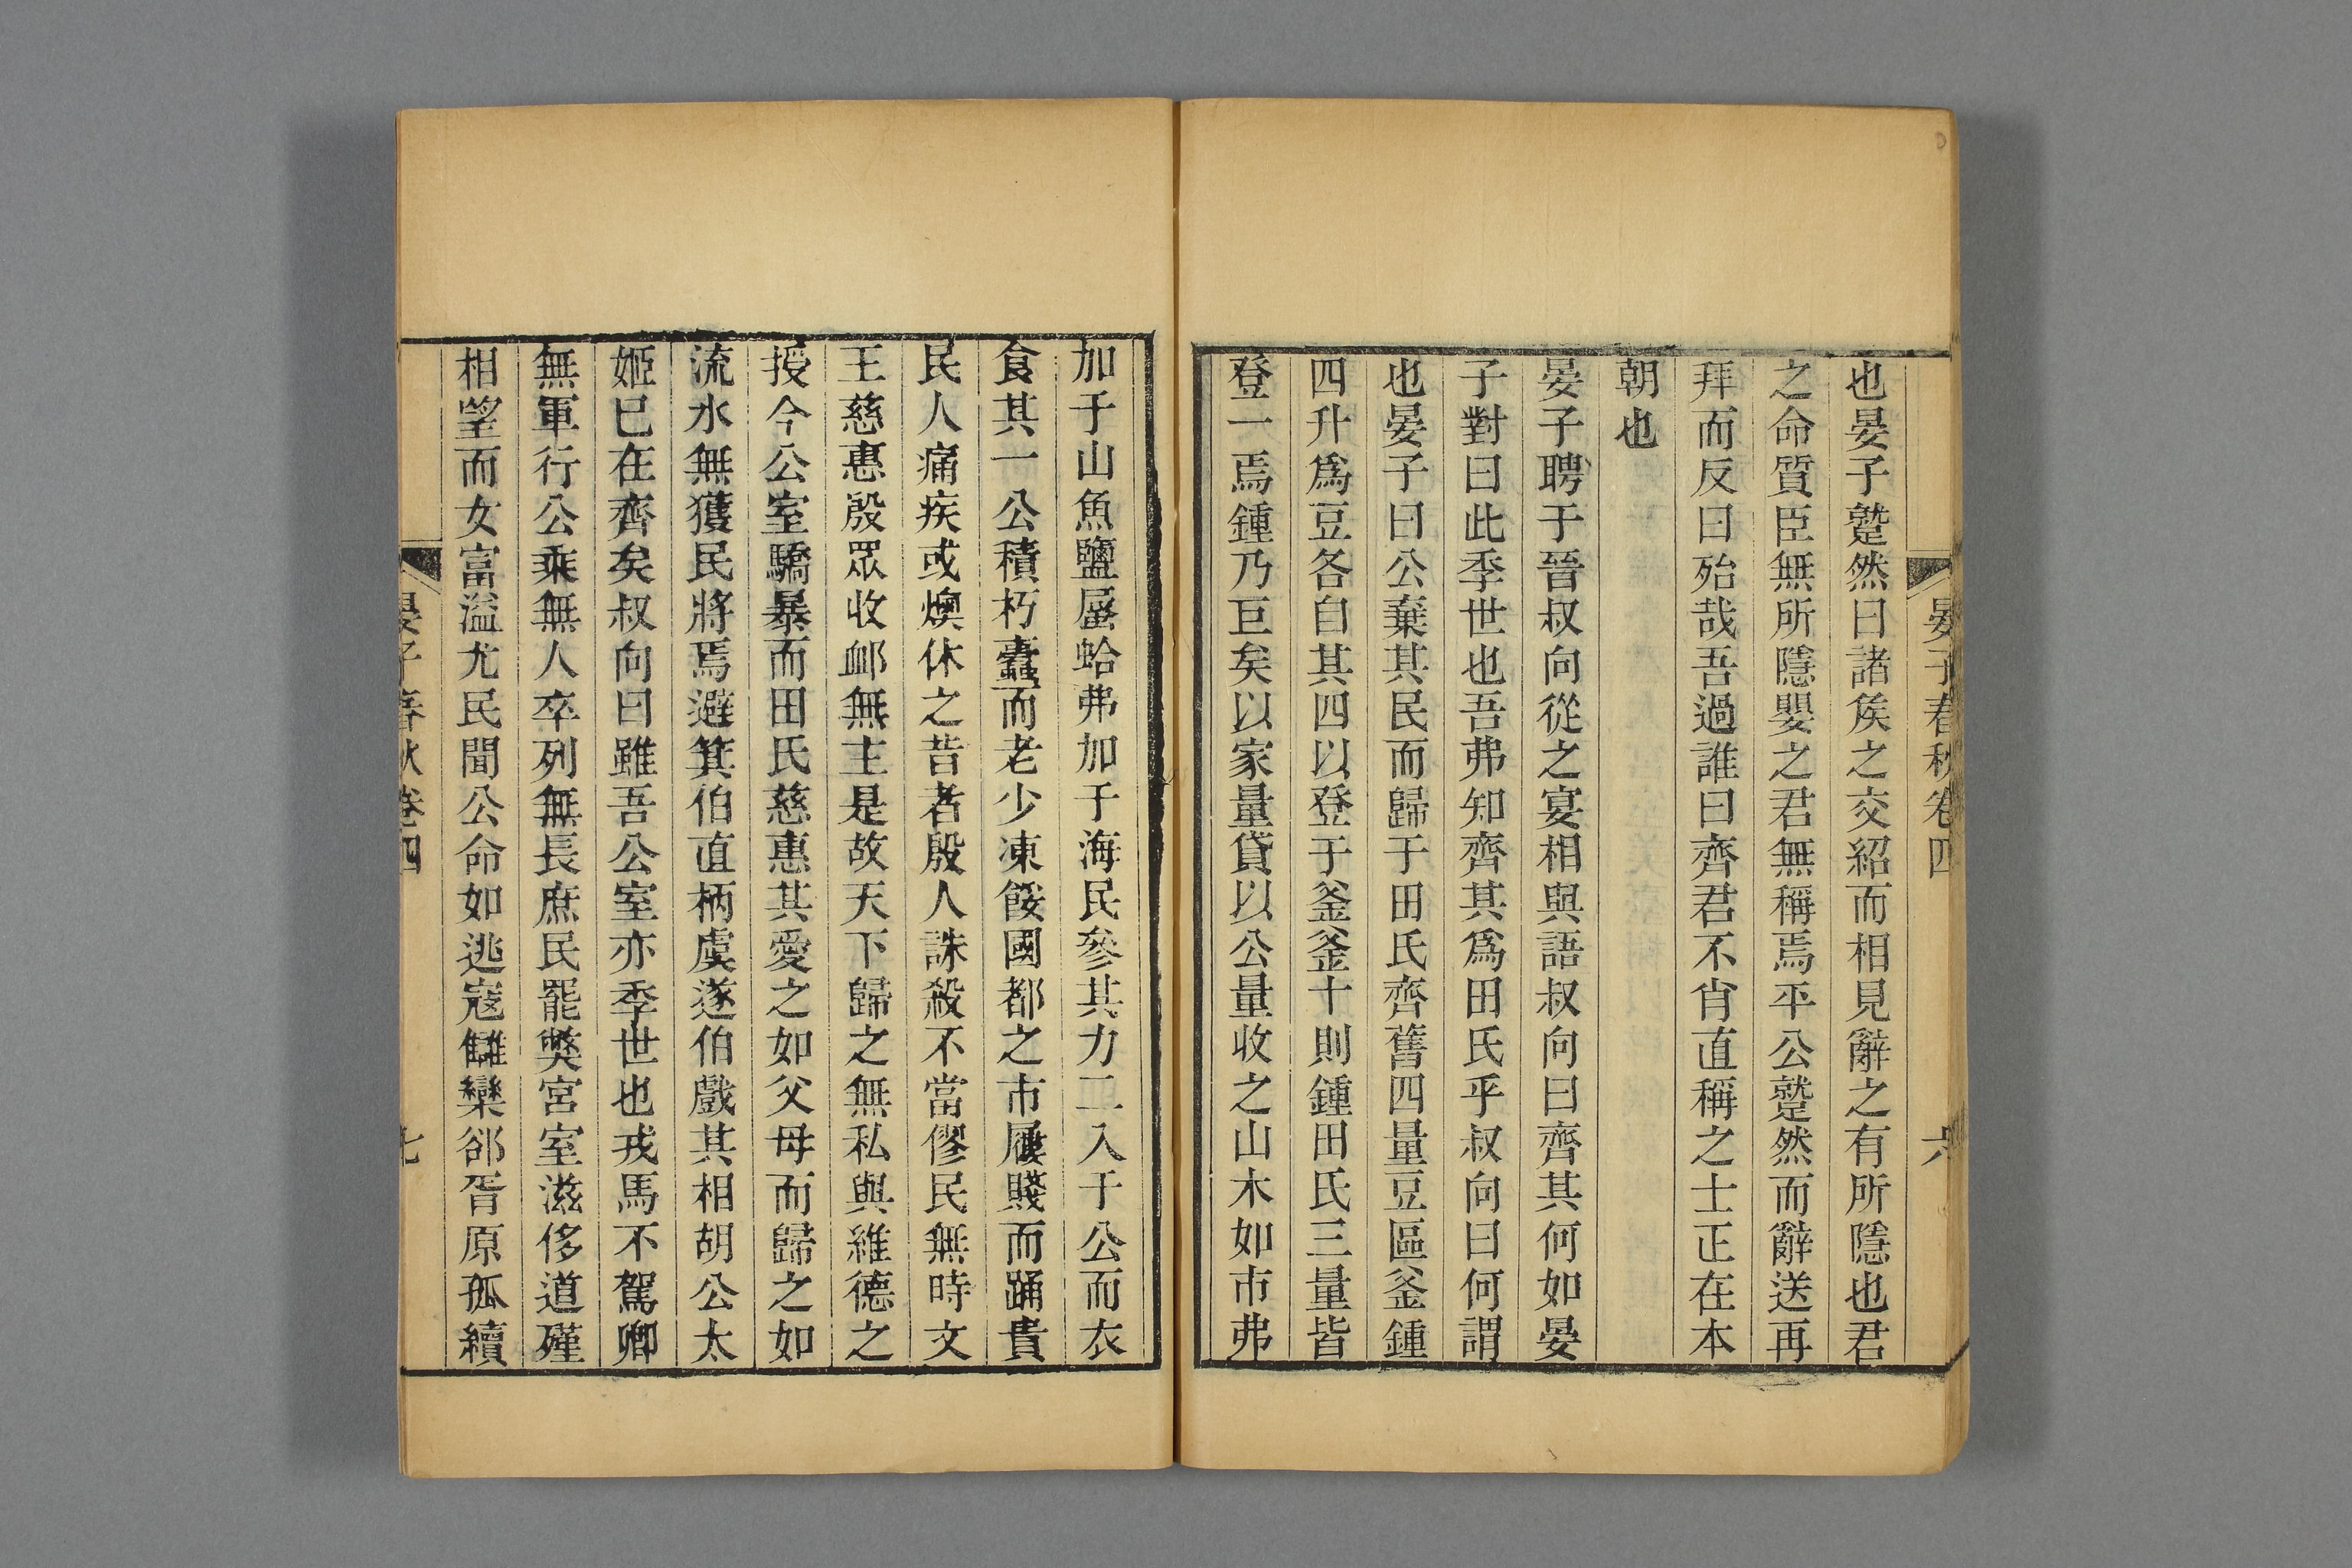 晏子春秋卷四
六
也晏子蹵然曰諸矦之交紹而相見辭之有所隱也君
之命質臣無所隱嬰之君無稱焉平公蹵然而辭送再
拜而反曰殆哉吾過誰曰齊君不肖直稱之士正在本
朝也
晏子聘于晉叔向從之宴相與語叔向曰齊其何如晏
子對曰此季世也吾弗知齊其爲田氏乎叔向曰何謂
也晏子曰公棄其民而歸于田氏齊舊四量豆區釜鍾
四升爲豆各自其四以登于釜釜十則鍾田氏三量皆
登一焉鍾乃巨矣以家量貸以公量收之山木如市弗
加于山魚鹽蜃蛤弗加于海民參其力二入于公而衣
食其一公積朽蠹而老少凍餒國都之市屨賤而踊貴
民人痛疾或燠休之昔者殷人誅殺不當僇民無時文
王慈惠殷眾收卹無主是故天下歸之無私與維德之
授今公室驕暴而田氏慈惠其愛之如父母而歸之如
流水無獲民將焉避箕伯直柄虞遂伯戲其相胡公太
姬已在齊矣叔向曰雖吾公室亦季世也戎馬不駕卿
無軍行公乘無人卒列無長庶民罷獘宮室滋侈道殣
相望而女富溢尤民聞公命如逃寇讎欒郤胥原孤續
晏子春秋卷四
七